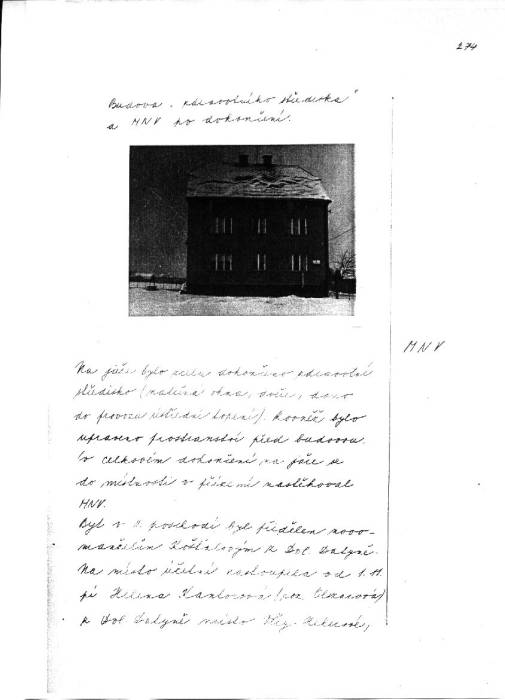 274
Budova „zdravotního střediska"
a MNV po dokončení.
MNV
Na jaře bylo zcela dokončeno zdravotní
středisko (natřena okna, dveře, dáno
do provozu ústřední topení). Rovněž bylo
upraveno prostranství před budovou.
Po celkovém dokončení na jaře se
do místností v přízemí nastěhoval
MNV.
Byt v I. poschodí byl přidělen novo-
manželům z Dol. Datyně.
Na místo účetní nastoupila od 1. 11.
pí Helena Kantorová (roz.
z Dol Datyně místo